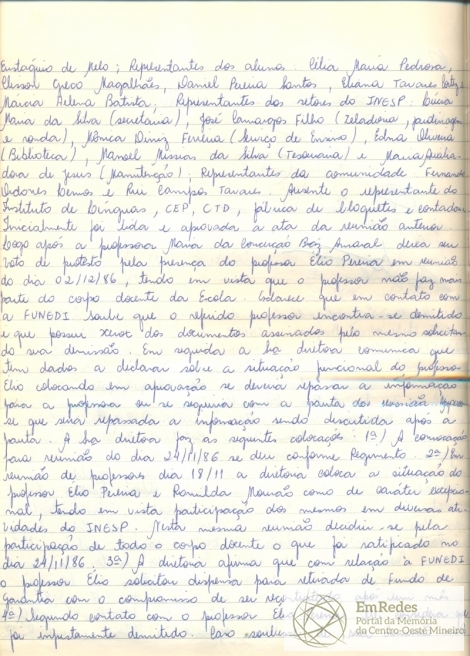 Eustáquio de Melo; Representantes dos alunos: Célia Maria Pedrosa,
Greco Magalhães, Daniel Pereira Santos, Eliana Tavares
Márcia Helena Batista; Representantes dos setores do INESP: Lucia
Maria da Silva (secretaria), José Camargos Filho (Zeladoria,
e ronda), Mônica Diniz Ferreira (Serviço de Ensino), Edna Oliveira
(Biblioteca), Manoel Messias da Silva (Tesouraria) e Maria Auxilia-
dora de Jesus (Manutenção); Representantes da comunidade: Fernando
e Rui Campos Tavares. Ausente o representante do
Instituto de Línguas, CEP, CTD, fábrica de bloquetes e contador.
Inicialmente foi lida e aprovada a ata da reunião anterior.
Logo após a professora Maria da Conceição Amaral deixa seu
voto de protesto pela presença do professor Elio Pereira em reunião
do dia 02/12/86, tendo em vista que o professor não faz mais
parte do corpo docente da Escola. Esclarece que em contato com
a FUNEDI soube que o referido professor encontra-se demitido
e que possui xerox dos documentos assinados pelo mesmo solicitan
do sua demissão. Em seguida a Sra diretora comunica que
tem dados a declarar sobre a situação funcional do professor
Elio colocando em aprovação se deveria repassar a informação
para a professora ou se seguiria com a pauta da reunião.
se que seria repassada a informação sendo discutida após a
pauta. A Sra diretora faz as seguintes colocações: 1ª) A convocação
para reunião do dia 24/11/86 se deu conforme Regimento. 2ª) Em
reunião de professores dia 18/11 a diretora coloca a situação do
professor Elio Pereira e Romilda Mourão como de caráter excepcio
nal, tendo em vista participação dos mesmos em diversas ati-
vidades do INESP. Nesta mesma reunião decidiu-se pela
participação de todo o corpo docente o que foi ratificado no
dia 24/11/86. 3ª) A diretora afirma que com relação à FUNEDI
o professor Elio solicitou dispensa para retirada de Fundo de
Garantia com o compromisso de ser após um mês.
4ª) Segundo contato com o professor Elio
foi injustamente demitido. Caso
EmRedes
Portal da Memória
da Centro-Oeste Mineiro